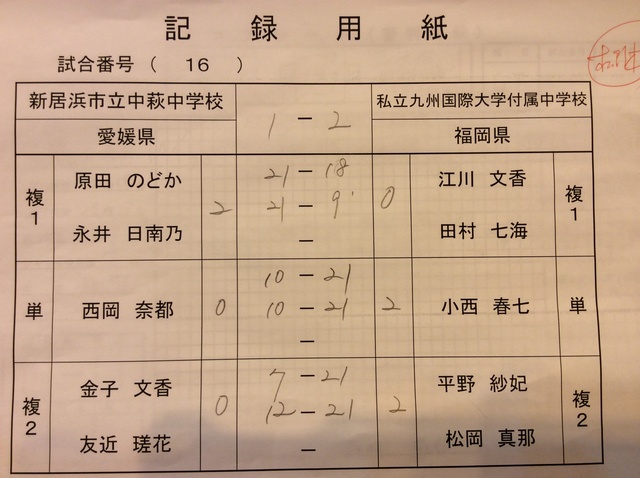 記録用紙
試合番号 ( 16 )
新居浜市立中萩中学校 1 - 2 私立九州国際大学付属中学校
愛媛県 福岡県
複1 原田 のどか 2 21 - 18 0 江川 文香 複1
21 - 9
永井 日南乃 - 田村 七海
単 西岡 奈都 0 10 - 21 2 小西 春七 単
10 - 21
-
複2 金子 文香 0 7 - 21 2 平野 紗妃 複2
12 - 21
友近 瑳花 - 松岡 真那